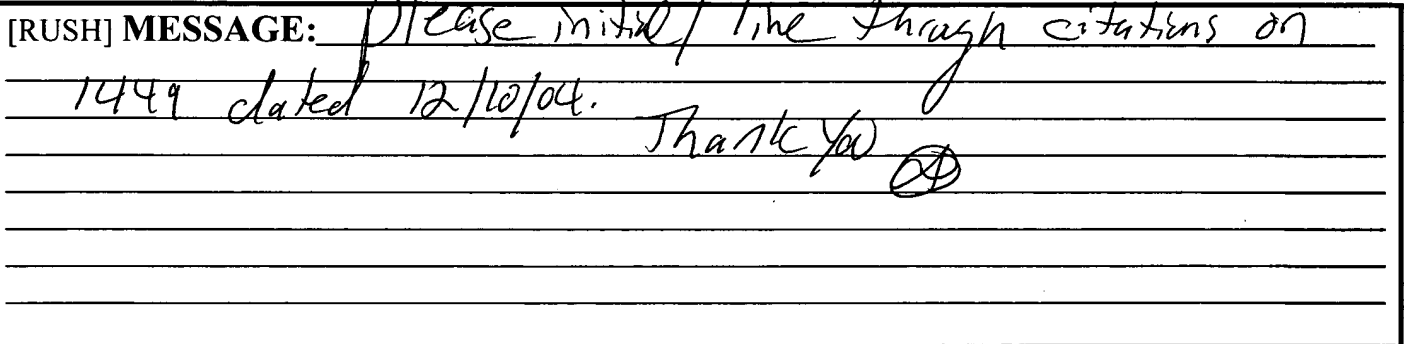 [RUSH] MESSAGE: Please initial/ line through citations on
1449 dated 12/10/04.
Thank You